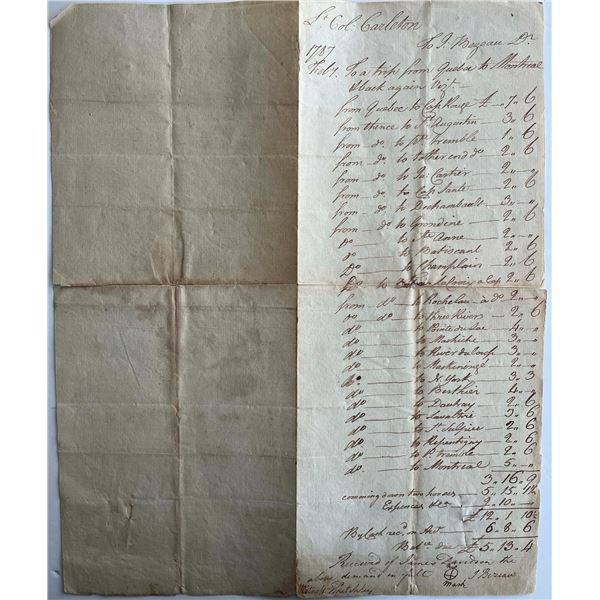 Lt Col: Carleton
To J. Bezeau Dr
1787
Feby. To a trip from Quebec to Montreal
& back again Vizt.
from Quebec to Cap Rouge £ - " 7 " 6
from thence to St. Augustin 3 " 6
from do to Pte Tremble 1 " 6
from do to tother end do 2 " 6
from do to Ja: Cartier 2 " "
from do to Cap Santé 2 " 6
from do to Dechambault 3 " "
from do to Grondine 2 " 6
Do to Ste Anne 2 " "
Do to Batiscant 2 " 6
Do to Champlain 2 " 6
Do to a Cap 2 " 6
from do to Rocheleau a do 2 " "
do do to Three Rivers 2 " 6
do to Pointe du Lac 4 " "
do to Mashiche 3 " "
do to River du Loup 3 " "
do to Maskinongé 2 " "
do to N. York 3 " 3
do to Berthier 4 " "
do to Dautray 2 " 6
do to Lavaltrie 3 " 6
do to St. Sulpice 2 " 6
do to Repentigny 2 " 6
do to P. tremble 2 " 6
do to Montreal 5 " "
3 " 16 " 9
comming down two horses 5 " 15 " 1½
Expences &ca 2 " 10 " "
£ 12 " 1 " 10½
By Cash recd. on Acct 6 " 8 " 6
Balce due £ 5 " 13 " 4
Received of James Davidson the
above demand in full J Bezeau
mark
Witness